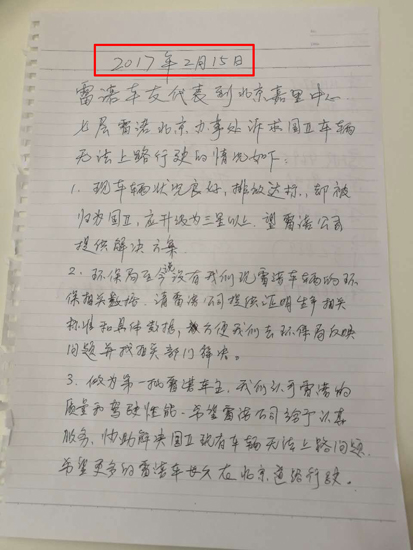 2017年2月15日
雷诺车友代表到北京嘉里中心
七层雷诺北京办事处诉求国Ⅱ车辆
无法上路行驶的情况如下：
1、现车辆状况良好，排放达标，却被
归为国Ⅱ，应升级为三星以上。望雷诺公司
提供解决方案。
2、环保局至今没有我们现雷诺车辆的环
保相关数据，请雷诺公司提供证明生产相关
标准和具体数据，方便我们去环保局反映
问题并找相关部门解决。
3、做为第一批雷诺车主，我们认可雷诺的
质量和驾驶性能。希望雷诺公司给予以
服务，协助解决国Ⅱ现有车辆无法上路问题。
希望更多的雷诺车长久在北京道路行驶。